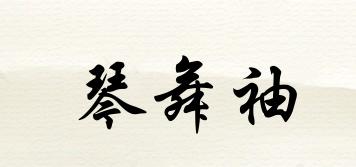 琴舞袖